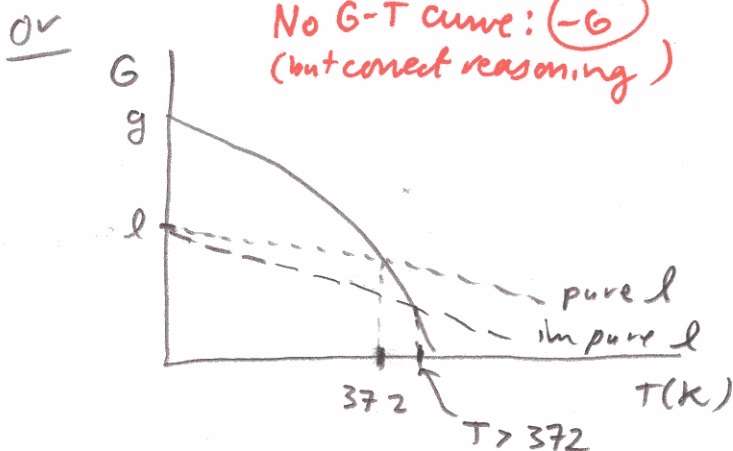 or
No G-T curve: -6
(but correct reasoning)
G
g
l
pure l
impure l
372
T(K)
T > 372